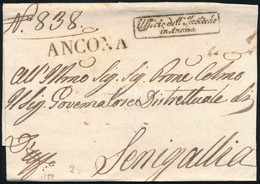 N.º 838.
Uffizio dell'Ispettore
in Ancona
ANCONA
All' Illmo Sig. Sig. Prone Colmo
Il Sig. Governatore Distrettuale di
Senigallia